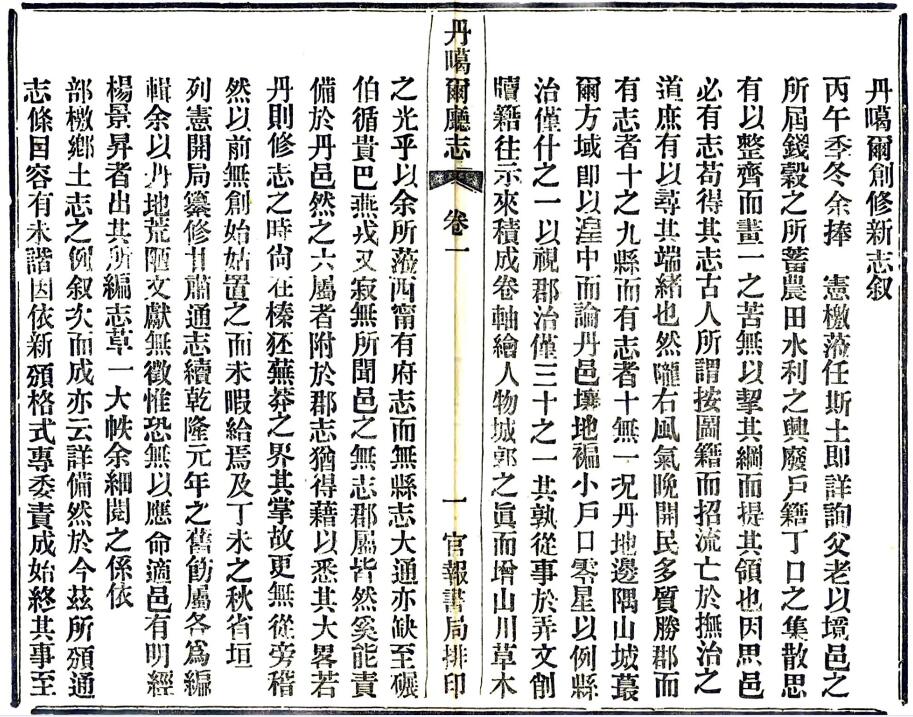 丹噶爾創修新志叙
丙午季冬余捧　憲檄蒞任斯土即詳詢父老以境邑之
所屆錢榖之所蓄農田水利之興廢戶籍丁口之集散思
有以整齊而畫一之苦無以挈其綱而提其領也因思邑
必有志苟得其志古人所謂按圖籍而招流亡於撫治之
道庶有以尋其端緒也然隴右風氣晚開民多質勝郡而
有志者十之九縣而有志者十無一況丹地邊隅山城蕞
爾方域即以湟中而論丹邑壤地褊小戶口零星以例縣
治僅什之一以視郡治僅三十之一其孰從事於弄文創
牘籍往示來積成卷軸繪人物城郭之眞而增山川草木
丹噶爾廳志　卷一　一　官報書局排印
之光乎以余所蒞西甯有府志而無縣志大通亦缺至碾
伯循貴巴燕戎又寂無所聞邑之無志郡屬皆然奚能責
備於丹邑然之六屬者附於郡志猶得藉以悉其大畧若
丹則修志之時尙在榛狉蕪莽之界其掌故更無從旁稽
然以前無創始姑置之而未暇給焉及丁未之秋省垣
列憲開局纂修甘肅通志續乾隆元年之舊飭屬各爲編
輯余以丹地荒陋文獻無徵惟恐無以應命適邑有明經
楊景昇者出其所編志草一大帙余細閱之係依
部檄鄉土志之例叙次而成亦云詳備然於今玆所頒通
志條目容有未諧因依新頒格式專委責成始終其事至